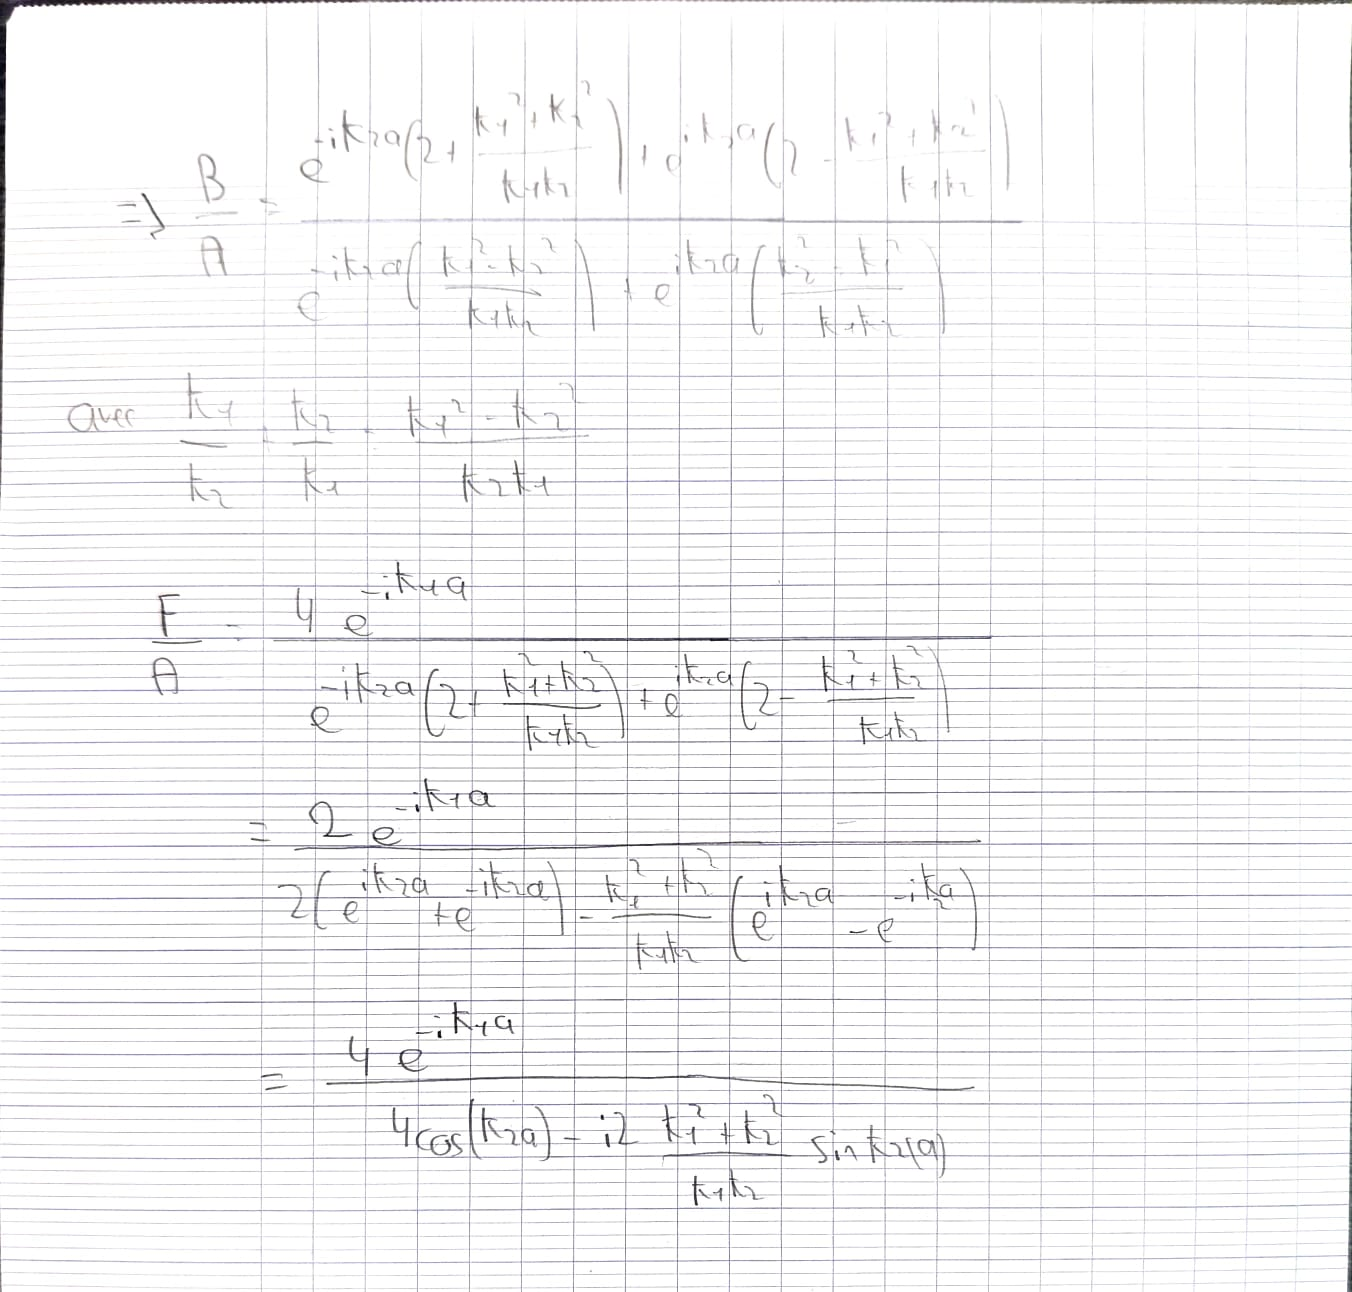 => B/A = (e^{-ik₂a}(2 + (k₁²+k₂²)/(k₁k₂)) + e^{ik₂a}(2 - (k₁²+k₂²)/(k₁k₂))) / (e^{-ik₂a}((k₁²-k₂²)/(k₁k₂)) + e^{ik₂a}((k₂²-k₁²)/(k₁k₂)))
avec k₁/k₂ - k₂/k₁ = (k₁²-k₂²)/(k₂k₁)
F/A = 4e^{-ik₁a} / (e^{-ik₂a}(2 + (k₁²+k₂²)/(k₁k₂)) + e^{ik₂a}(2 - (k₁²+k₂²)/(k₁k₂)))
= 2e^{-ik₁a} / (2(e^{ik₂a} + e^{-ik₂a}) - (k₁²+k₂²)/(k₁k₂) (e^{ik₂a} - e^{-ik₂a}))
= 4e^{-ik₁a} / (4cos(k₂a) - i2 (k₁²+k₂²)/(k₁k₂) sin k₂(a))